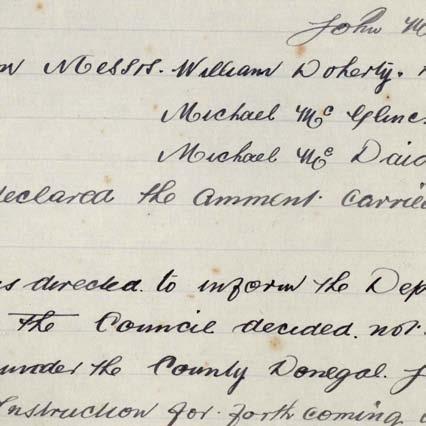 John M
Messrs. William Doherty.
Michael Mc Glinc
Michael Mc Daid
declared the amment. carried
directed. to inform the Dep
The Council decided. not.
under the County Donegal. J
Instruction for. forth coming